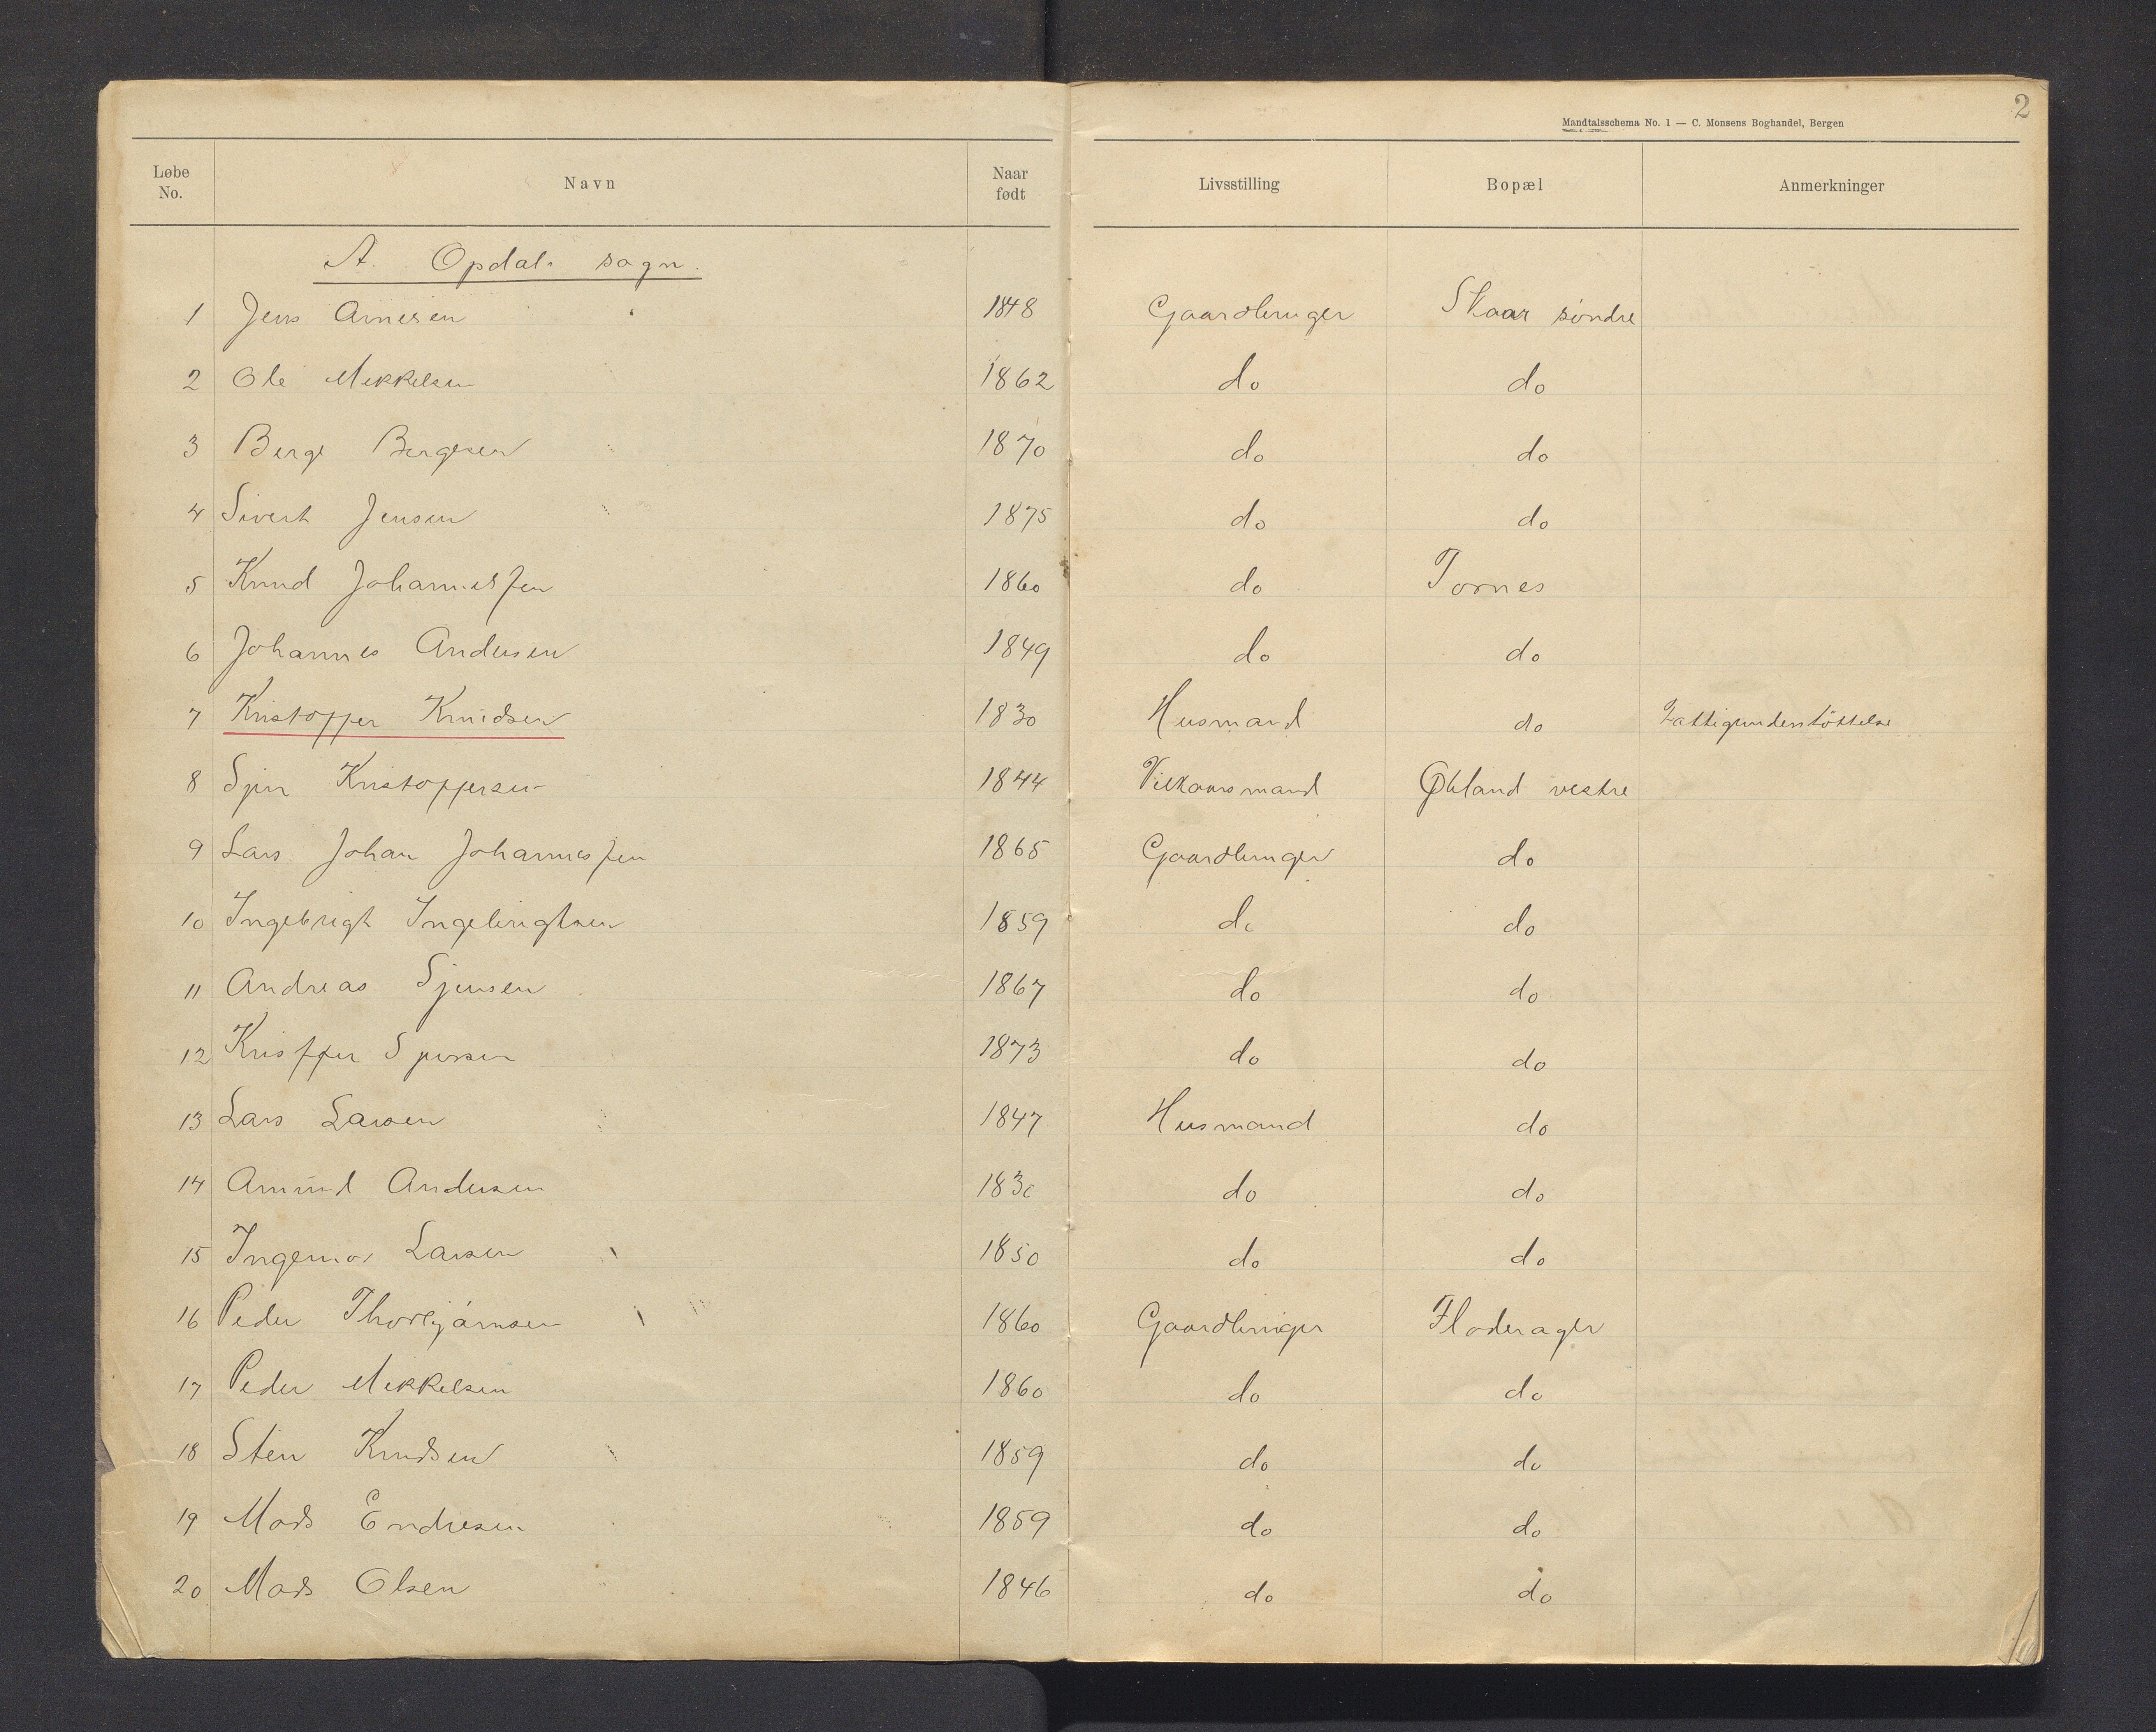 2
Mandtalsschema No. 1 — C. Monsens Boghandel, Bergen
Løbe No. Navn Naar født Livsstilling Bopæl Anmerkninger
A. Opdals sogn.
1 Jens Arnesen 1848 Gaardbruger Skaar søndre
2 Ole Mikkelsen 1862 do do
3 Berge Bergesen 1870 do do
4 Sivert Jensen 1875 do do
5 Knud Johannessen 1860 do Tornes
6 Johannes Andersen 1849 do do
7 Kristoffer Knudsen 1830 Husmand do Fattigunderstöttelse
8 Kristoffersen 1844 Vilkaarsmand Økland vestre
9 Lars Johan Johannessen 1865 Gaardbruger do
10 Ingebrigt Ingebrigtsen 1859 do do
11 Andreas 1867 do do
12 1873 do do
13 Lars Larsen 1847 Husmand do
14 Amund Andersen 1830 do do
15 Larsen 1850 do do
16 Peder Thorbjørnsen 1860 Gaardbruger
17 Peder Mikkelsen 1860 do do
18 Sten Knudsen 1859 do do
19 Mads Endresen 1859 do do
20 Mads Olsen 1846 do do